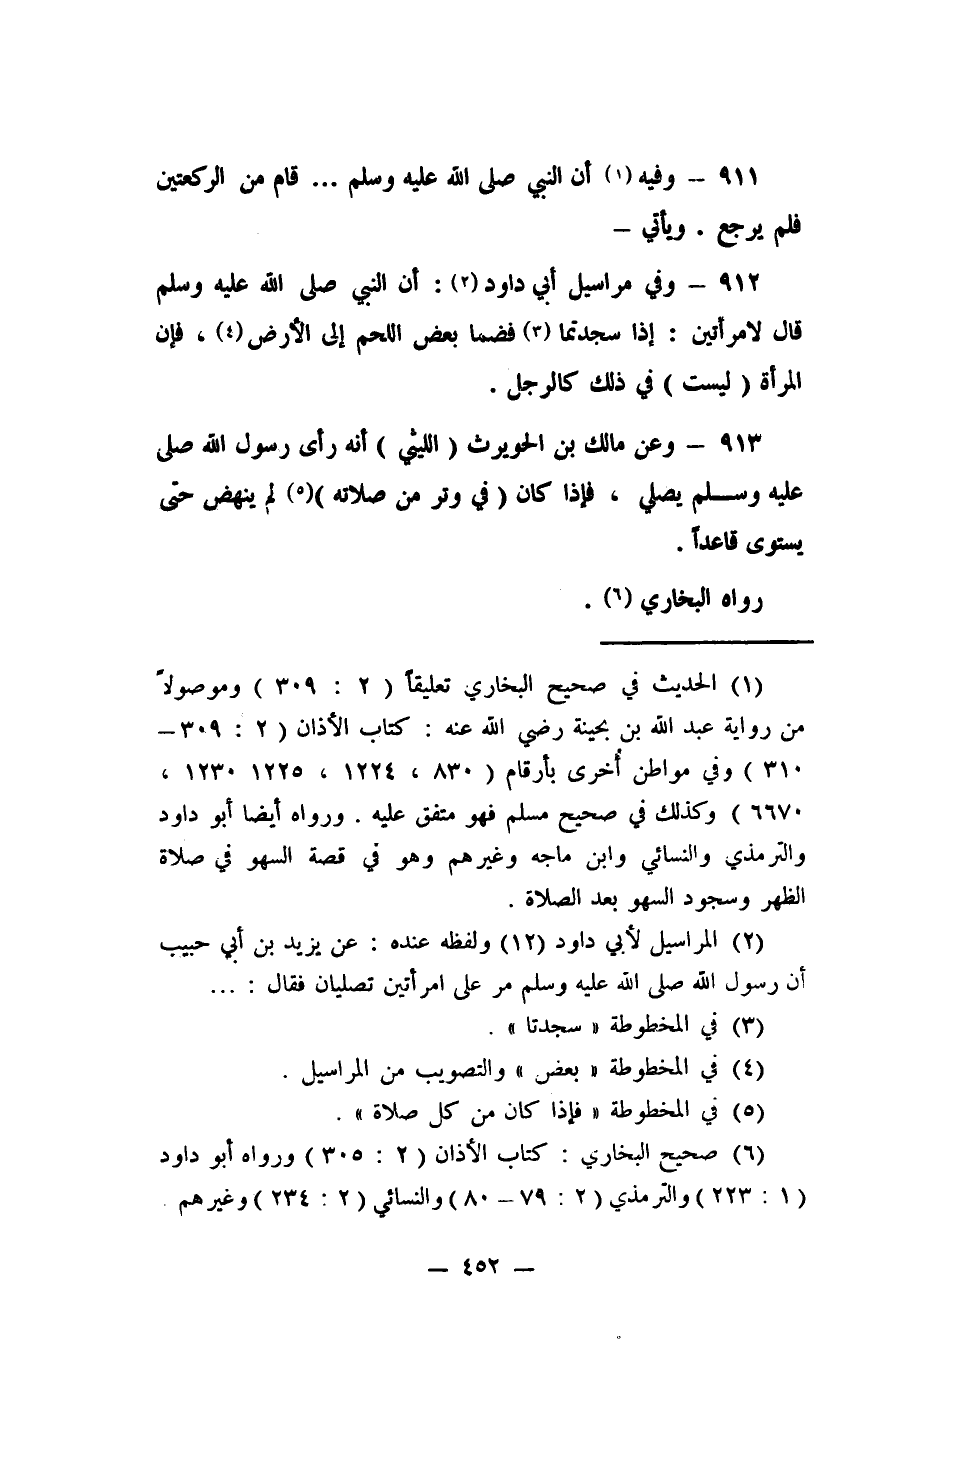 ٩١١ – وفيه (١) أن النبي صلى الله عليه وسلم ... قام من الركعتين
فلم يرجع . ويأتي –
٩١٢ – وفي مراسيل أبي داود (٢) : أن النبي صلى الله عليه وسلم
قال لامرأتين : إذا سجدتما (٣) فضما بعض اللحم إلى الأرض (٤) ، فإن
المرأة ( ليست ) في ذلك كالرجل .
٩١٣ – وعن مالك بن الحويرث ( الليثي ) أنه رأى رسول الله صلى
عليه وسلم يصلي ، فإذا كان ( في وتر من صلاته )(٥) لم ينهض حتى
يستوى قاعداً .
رواه البخاري (٦) .
(١) الحديث في صحيح البخاري تعليقاً ( ٢ : ٣٠٩ ) وموصولاً
من رواية عبد الله بن بحينة رضي الله عنه : كتاب الأذان ( ٢ : ٣٠٩ –
٣١٠ ) وفي مواطن أُخرى بأرقام ( ٨٣٠ ، ١٢٢٤ ، ١٢٢٥ ١٢٣٠ ،
٦٦٧٠ ) وكذلك في صحيح مسلم فهو متفق عليه . ورواه أيضا أبو داود
والترمذي والنسائي وابن ماجه وغيرهم وهو في قصة السهو في صلاة
الظهر وسجود السهو بعد الصلاة .
(٢) المراسيل لأبي داود (١٢) ولفظه عنده : عن يزيد بن أبي حبيب
أن رسول الله صلى الله عليه وسلم مر على امرأتين تصليان فقال : ...
(٣) في المخطوطة « سجدتا » .
(٤) في المخطوطة « بعض » والتصويب من المراسيل .
(٥) في المخطوطة « فإذا كان من كل صلاة » .
(٦) صحيح البخاري : كتاب الأذان ( ٢ : ٣٠٥ ) ورواه أبو داود
( ١ : ٢٢٣ ) والترمذي ( ٢ : ٧٩ – ٨٠ ) والنسائي ( ٢ : ٢٣٤ ) وغيرهم .
– ٤٥٢ –